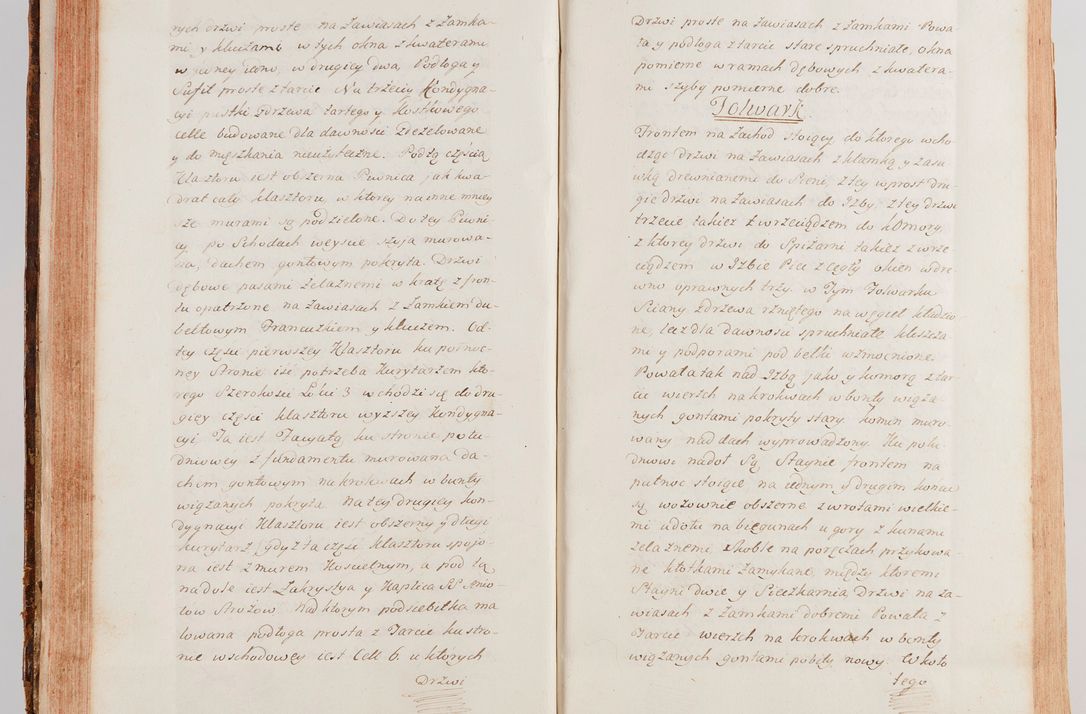 rych drzwi proste na Zawiasach z Zamka-
mi y kluczami w tych okna z kwaterami
w jedney iedno, w drugiey dwa, Podłoga y
Sufit proste z tarcic Na trzeciey Kondygna-
cyi pustki zdrzewa tartego y Kostkowego
celle budowane dla dawnosci zdezelowane
y do mięszkania nieużyteczne. Pod tą częścią
Klasztoru iest obszerna Piwnica jak kwa-
drat cały klasztoru, w ktorey na inne mniey
sze murami są podzielone. Do tey Piwni-
cy po Schodach weyscie szyja murowa-
na, dachem gontowym pokryta. Drzwi
dębowe pasami żelaznemi w kratę z fron-
tu opatrzone na Zawiasach z Zamkiem du-
beltowym Francuzkiem y kluczem. Od-
tey częsci pierwszey Klasztoru ku pułnoc-
ney Stronie isć potrzeba Kurytarzem kto-
rego Szerokości Łokci 3 wchodzi się do dru-
giey części klasztoru wyższey Kondygna-
cyi Ta iest Facyatą ku stronie połu-
dniowey z fundamentu murowana da-
chem gontowym na krokwach w bonty
wiązanych pokryta na tey drugiey kon-
dygnacyi Klasztoru iest obszerny y długi
kurytarz gdyż ta część klasztoru spojo-
na iest z murem Koscielnym, a pod tą
na dole iest Zakrystya y Kaplica SS Anio-
łow Strożow. Nad ktorym podsiebitka ma
lowana podłoga prosta z Tarcic ku stro-
nie wschodowey iest Cell 6. u ktorych
Drzwi
Drzwi proste na Zawiasach z Zamkami Powa
ła y podłoga z tarcic stare spruchniałe, okna
pomierne w ramach dębowych z kwatera-
mi szyby pomierne dobre.
Folwark.
Frontem na Zachod stoiący do ktorego wcho
dząc drzwi na Zawiasach z klamką y zasu
wką drewnianemi do Sieni, z tey wprost dru-
gie drzwi na Zawiasach do Izby, z tey drzwi
trzecie takież z wrzeciądzem do komory,
z ktorey drzwi do Spiżarni takież z wrze-
ciądzem w Izbie Piec z cegły okien w dre
wno oprawnych trzy. w Tym Folwarku
Sciany zdrzewa rzniętego na węgieł kładzio
ne, lecz dla dawnosci spruchniałe kleszcza
mi y podporami pod belki wzmocnione
Powała tak nad Izbą jako y komorą z tar
cic wierzch na krokwach w bonty wiąza-
nych gontami pokryty stary. komin muro-
wany nad dach wyprowadzony. Ku połu-
dniowi nadoł Są Staynie frontem na
pułnoc stoiące na iednym y drugim końcu
są wozownie obszerne z wrotami wielkie-
mi u dołu na biegunach u gory z kunami
żelaznemi skoble na poręczach przykowa-
ne kłotkami zamykane, między ktoremi
Stayni dwie y Sieczkarnia Drzwi na za-
wiasach z zamkami dobremi Powała z
Tarcic wierzch na krokwach w bonty
wiązanych gontami pobity nowy. W koło
tego